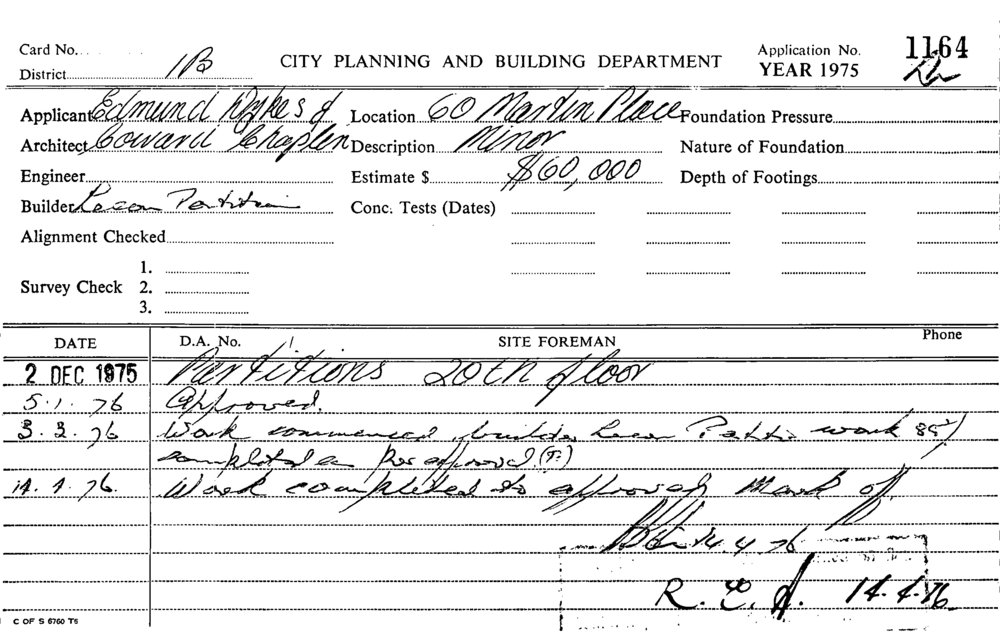 Card No.
District 1B
CITY PLANNING AND BUILDING DEPARTMENT
Application No. 1164
YEAR 1975
Applicant Edmund Dykes & Location 60 Martin Place Foundation Pressure
Architect Coward Chaplen Description Minor Nature of Foundation
Engineer Estimate $ $60,000 Depth of Footings
Builder Partition Conc. Tests (Dates)
Alignment Checked
1.
Survey Check 2.
3.
DATE D.A. No. SITE FOREMAN Phone
2 DEC 1975 Partitions 20th floor
5.1.76 Approved.
3.3.76 Work commenced, builder work
completed as per approval
14.4.76. Work completed to approval Mark of.
14.4.76
R. E. 14.4.76
C OF S 6760 T6